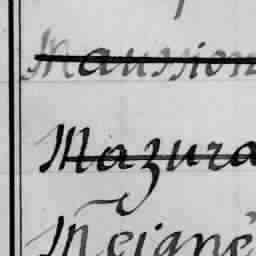 Maussion
Mazura
Mejanè